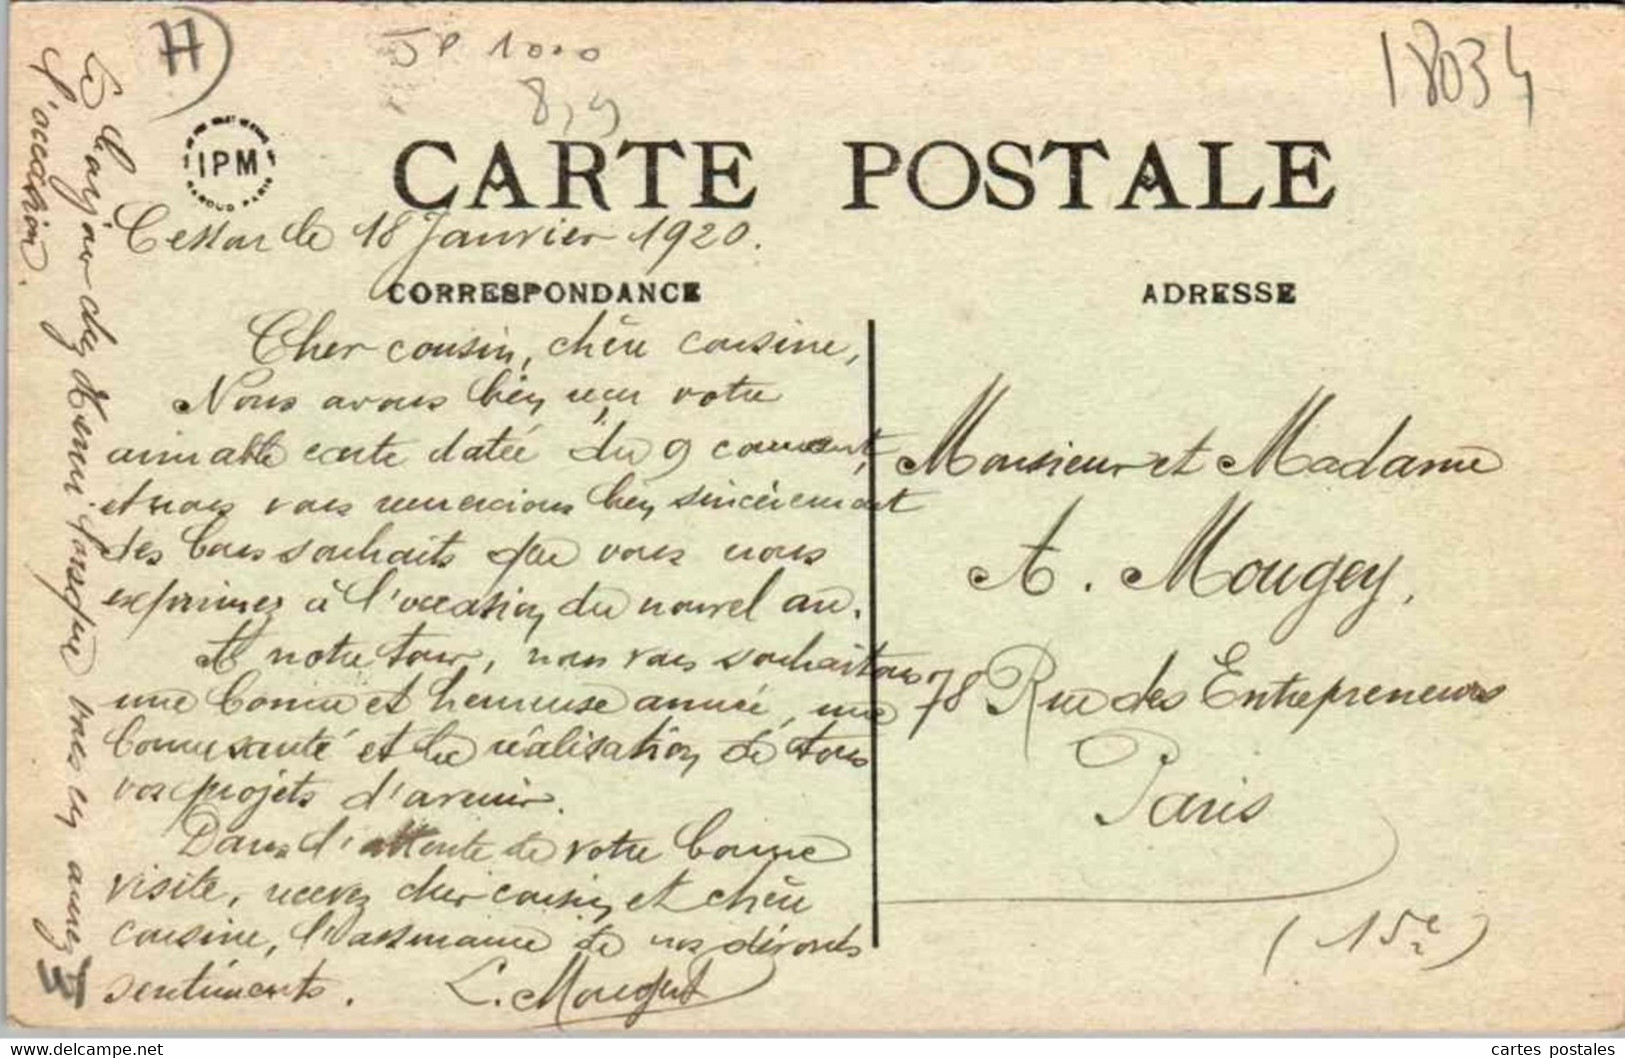 77
JP 1000
8,5
18034
IPM
CARTE POSTALE
Cesson le 18 Janvier 1920.
CORRESPONDANCE
ADRESSE
Cher cousin, chère cousine,
Nous avons bien reçu votre
aimable carte datée du 9 courant,
et nous vous remercions bien sincèrement
des bons souhaits que vous nous
exprimez à l'occasion du nouvel an.
A notre tour, nous vous souhaitons
une bonne et heureuse année, une
bonne santé et la réalisation de tous
vos projets d'avenir.
Dans l'attente de votre bonne
visite, recevez cher cousin et chère
cousine, l'assurance de nos dévoués
sentiments.
Le bonjour chez Henri lorsque vous en aurez
l'occasion.
Monsieur et Madame
A. Mougey,
78 Rue des Entrepreneurs
Paris
(15e)
delcampe.net
cartes postales